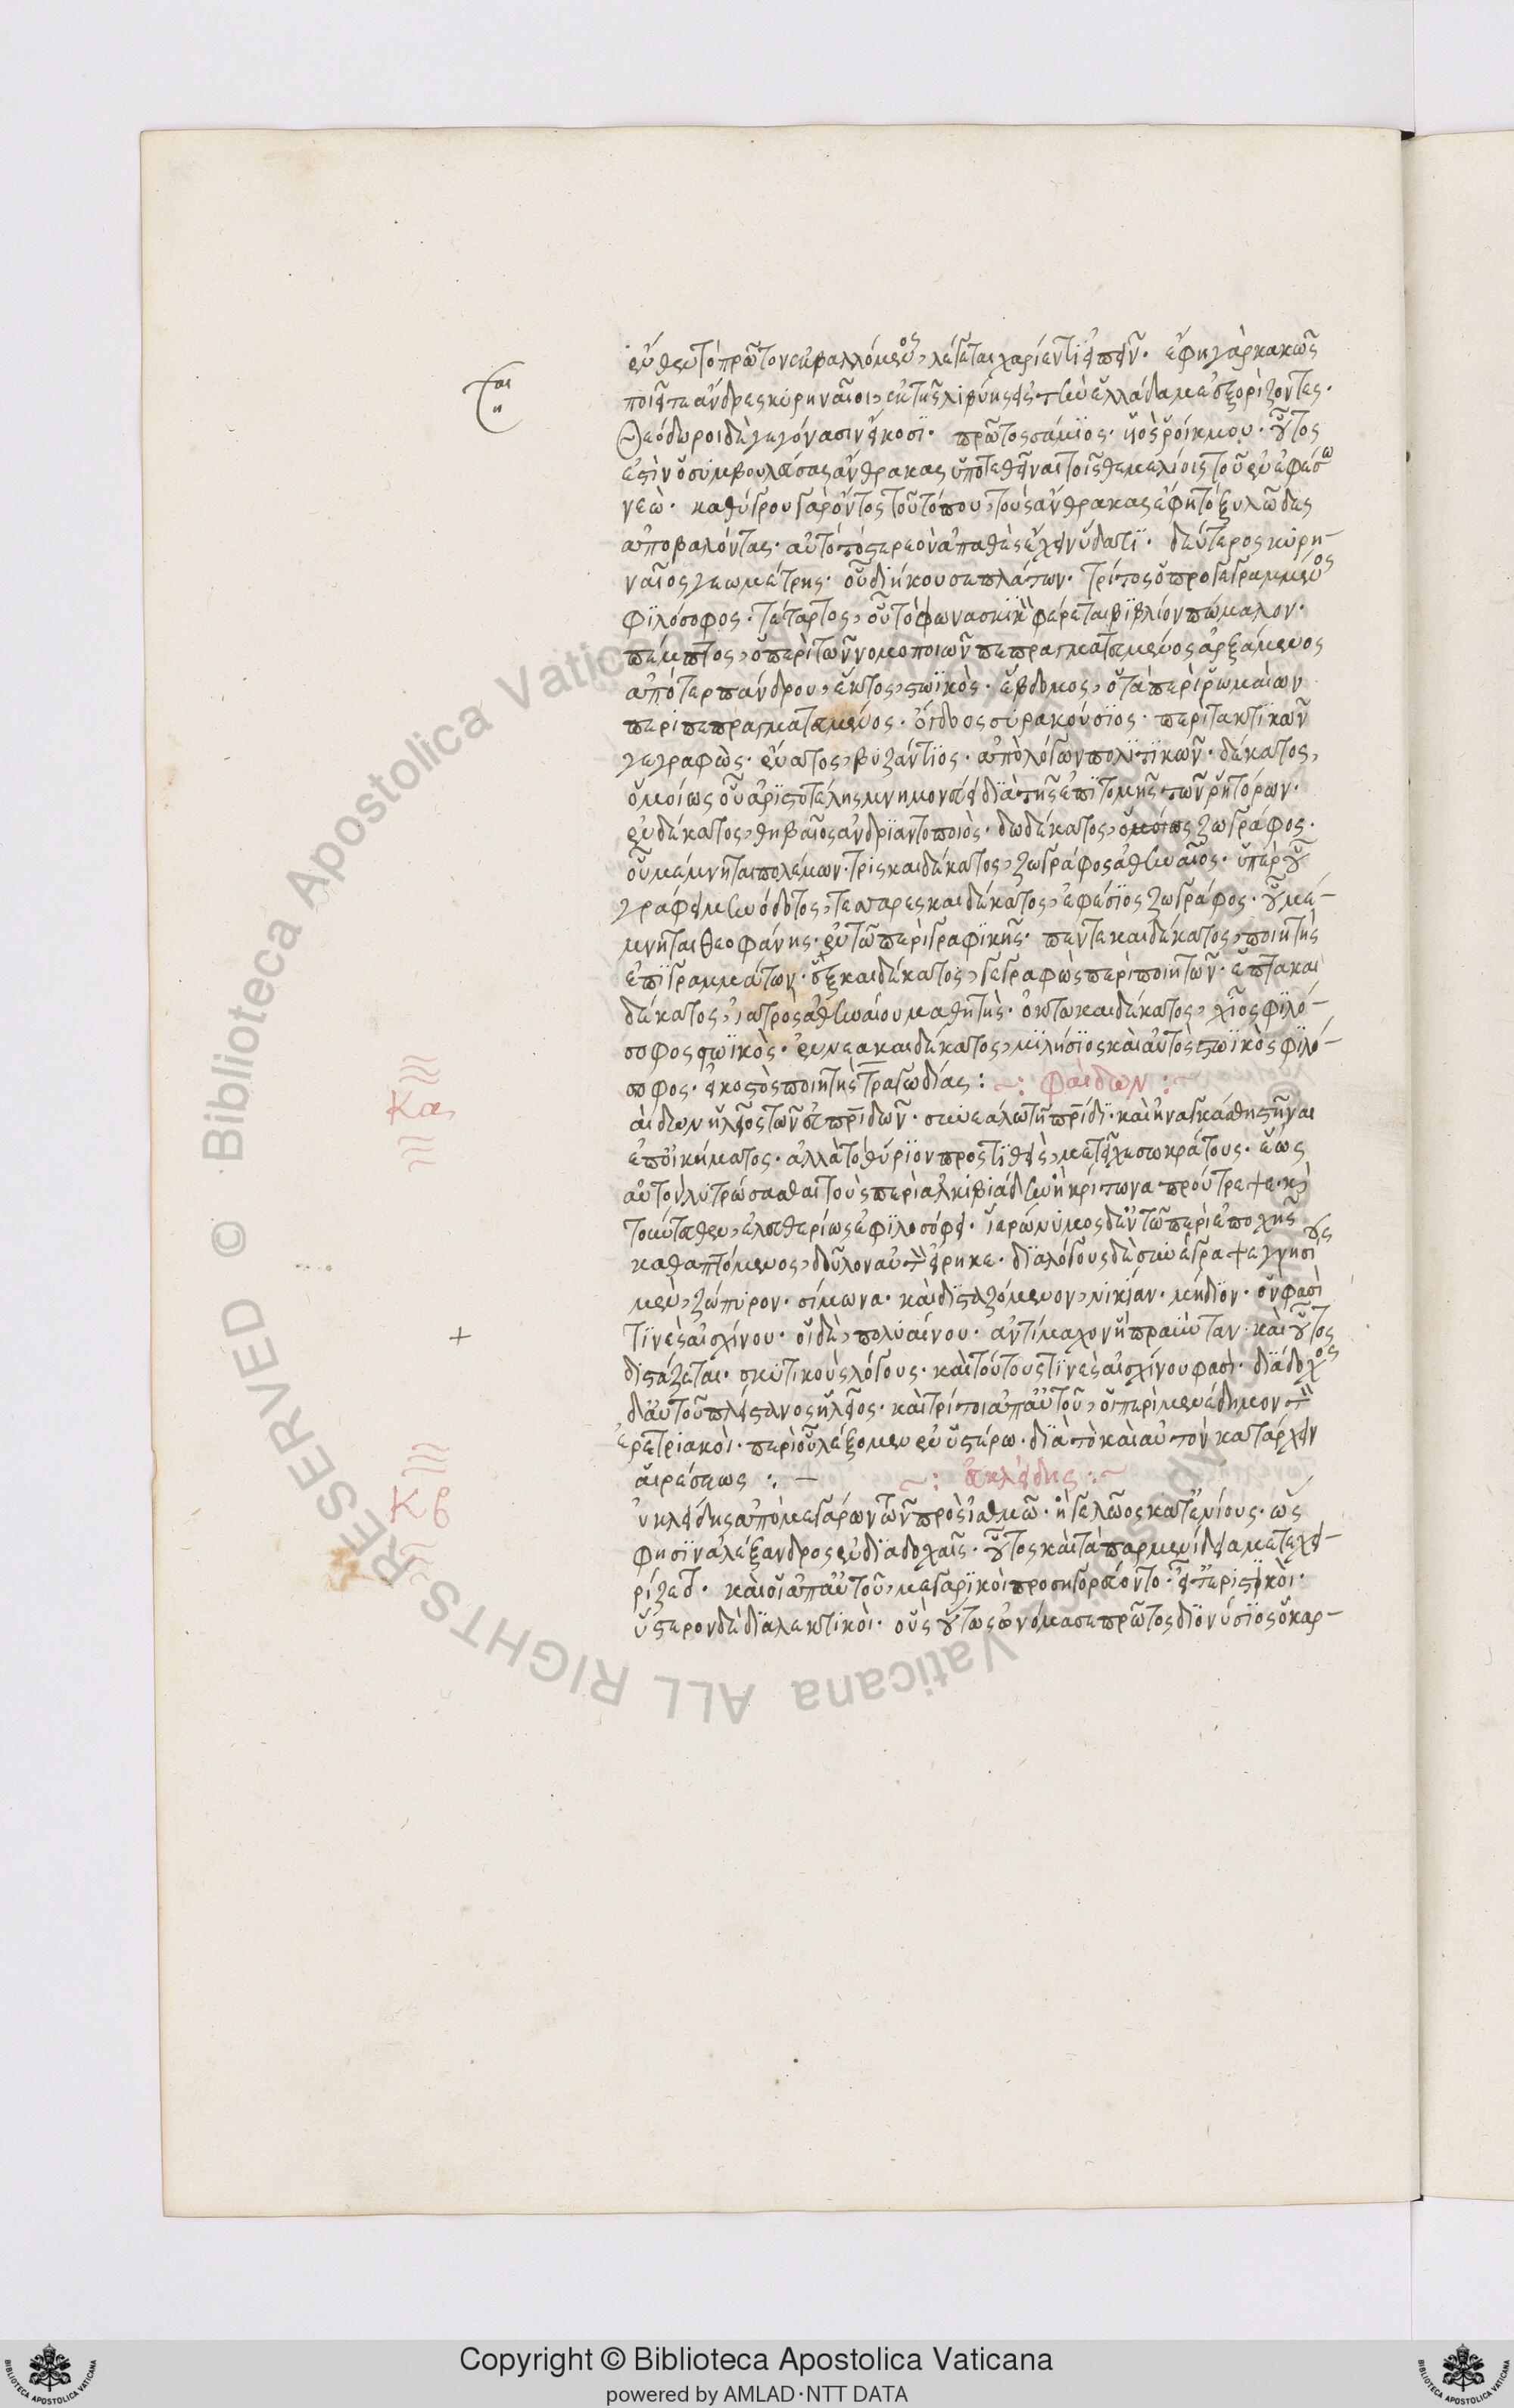 ἔνθεν τὸ πρῶτον ἐκβαλλόμενος, λέγεται χαρίεν τι εἰπεῖν. ἔφη γὰρ κακῶς
ποιεῖτε ἄνδρες κυρηναῖοι, ἐκ τῆς λιβύης εἰς τὴν ἑλλάδα με ἐξορίζοντες.
Θεόδωροι δὲ γεγόνασιν εἴκοσι. πρῶτος σάμιος. υἱὸς ῥοίκμου. οὗτός
ἐστιν ὁ συμβουλεύσας ἄνθρακας ὑποτεθῆναι τοῖς θεμελίοις τοῦ ἐν ἐφέσω
νεώ. καθύγρου γὰρ ὄντος τοῦ τόπου, τοὺς ἄνθρακας ἔφη τὸ ξυλῶδες
ἀποβαλόντας. αὐτὸ τὸ στερεὸν ἀπαθὲς ἔχειν ὕδατι. δεύτερος κυρη-
ναῖος γεωμέτρης. οὗ διήκουσε πλάτων. τρίτος ὁ προγεγραμμένος
φιλόσοφος. τέταρτος, οὗ τὸ φωνασκικὸν φέρεται βιβλίον πώμαλον.
πέμπτος, ὁ περὶ τῶν νομοποιῶν πεπραγματευμένος ἀρξάμενος
ἀπὸ τερπάνδρου, ἕκτος, στωϊκὸς. ἕβδομος, ὁ τὰ περὶ ῥωμαίων
περιπεπραγματευμένος. ὄγδοος συρακούσιος. περὶ τακτικῶν
γεγραφὼς. ἔνατος, βυζάντιος. ἀπὸ λόγων πολιτικῶν. δέκατος,
ὁμοίως οὗ ἀριστοτέλης μνημονεύει διὰ τῆς ἐπιτομῆς τῶν ῥητόρων.
ἑνδέκατος, θηβαῖος ἀνδριαντοποιὸς. δωδέκατος, ὁμοίως ζωγράφος.
οὗ μέμνηται πολέμων. τρισκαιδέκατος, ζωγράφος ἀθηναῖος. ὑπὲρ οὗ
γράφει μηνόδοτος, τεσσαρεσκαιδέκατος, ἐφέσιος ζωγράφος. οὗ μέ-
μνηται θεοφάνης. ἐν τῶ περὶ γραφικῆς. πεντεκαιδέκατος, ποιητὴς
ἐπιγραμμάτων. ἑξκαιδέκατος, γεγραφὼς περὶ ποιητῶν. ἑπτακαι
δέκατος, ἰατρὸς ἀθηναίου μαθητὴς. ὀκτωκαιδέκατος, χῖος φιλό-
σοφος στωϊκὸς. ἐννεακαιδέκατος, μιλήσιος καὶ αὐτὸς στωϊκὸς φιλό-
σοφος. εἰκοστὸς ποιητὴς τραγωδίας : ~: φαίδων :~
αίδων ἠλεῖος τῶν εὐπατριδῶν. συνεάλω τῇ πρίδι. καὶ ἠναγκάσθη στῆναι
ἐπ' οἰκήματος. ἀλλὰ τὸ θύριον προστιθεὶς, μετεῖχε σωκράτους. ἕως
αὐτὸν λυτρώσασθαι τοὺς περὶ ἀλκιβιάδην ἢ κρίτωνα προύτρεψε. κ(αὶ)
τοὐντεῦθεν, ἐλευθερίως ἐφιλοσόφει. ἱερώνυμος δ' ἐν τῶ περὶ ἐποχῆς
καθαπτόμενος, δοῦλον αὐτὸν εἴρηκε. διαλόγους δὲ συνέγραψε γνησίους
μὲν, ζώπυρον. σίμωνα. καὶ δισταζόμενον, νικίαν. μήδιον. ὅν φασί
τινες αἰσχίνου. οἱ δὲ, πολυαίνου. ἀντίμαχον ἢ πρεσβύτας. καὶ οὗτος
διστάζεται. σκυτικοὺς λόγους. καὶ τούτους τινὲς αἰσχίνου φασὶ. διάδοχος
δ' αὐτοῦ πλείστανος ἠλεῖος. καὶ τρίτοι ἀπ' αὐτοῦ, οἱ περὶ μενέδημον τὸν
ἐρετριακοὶ. περὶ οὗ λέξομεν ἐν ὑστέρω. διὰ τὸ καὶ αὐτὸν κατάρχειν
αἱρέσεως :. — ~: εὐκλείδης :~
ὐκλείδης ἀπὸ μεγάρων τῶν πρὸς ἰσθμῶ. ἢ γελῶος κατ' ἐνίους. ὥς
φησιν ἀλέξανδρος ἐν διαδοχαῖς. οὗτος καὶ τὰ παρμενίδεια μετεχει-
ρίζετο. καὶ οἱ ἀπ' αὐτοῦ, μεγαρικοὶ προσηγορεύοντο. εἶτ' ἐριστικοὶ.
ὕστερον δὲ διαλεκτικοὶ. οὓς οὕτως ὠνόμασε πρῶτος διονύσιος ὁ καρ-
Κα
+
Κβ
Copyright © Biblioteca Apostolica Vaticana
powered by AMLAD·NTT DATA